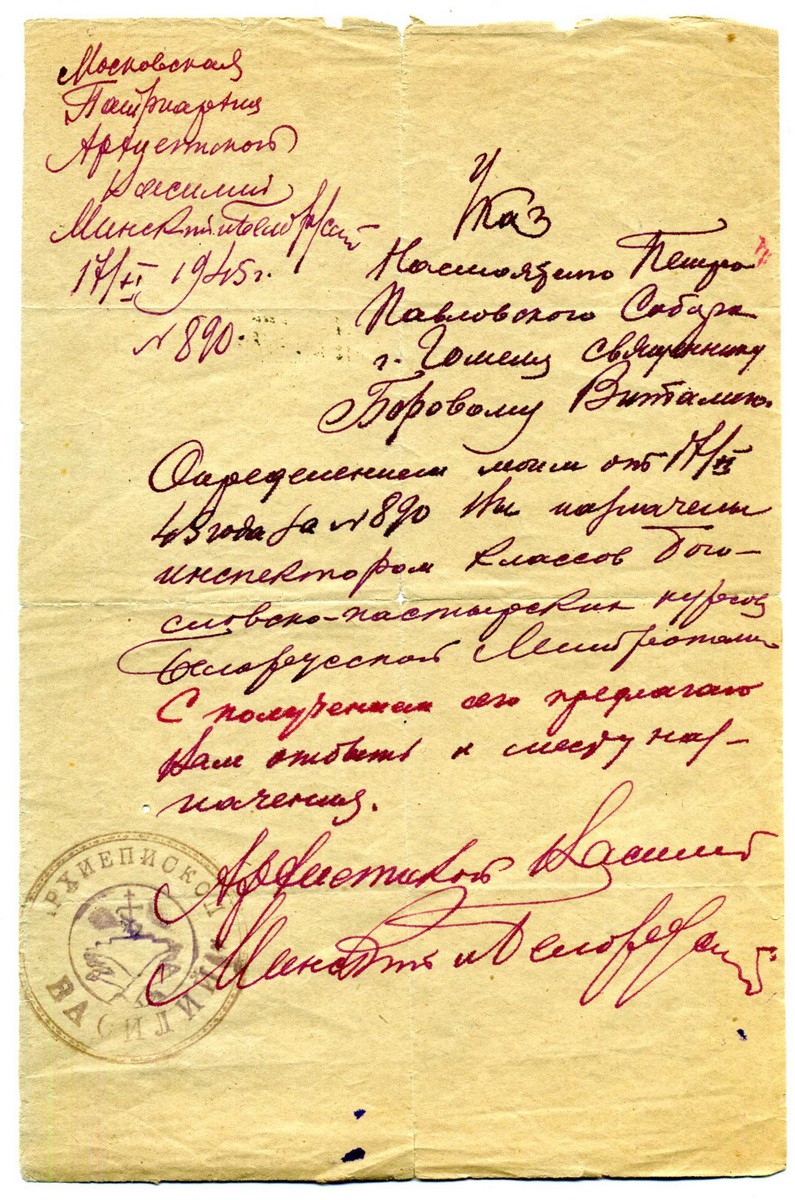 Московская
Патриархия
Архиепископ
Василий
Минский и Белорусский
17/XI 1945 г.
N 890.
Указ
Настоятелю Петро
Павловского Собора
г. Гомеля священнику
Боровому Виталию.
Определением моим от 17/XI
45 года за N 890 Вы назначены
инспектором классов Бого-
словско-пастырских курсов
Белорусской Митрополии
С получением сего предлагаю
Вам отбыть к месту наз-
начения.
Архиепископ Василий
Минский и Белорусский
АРХИЕПИСКОП
ВАСИЛИЙ